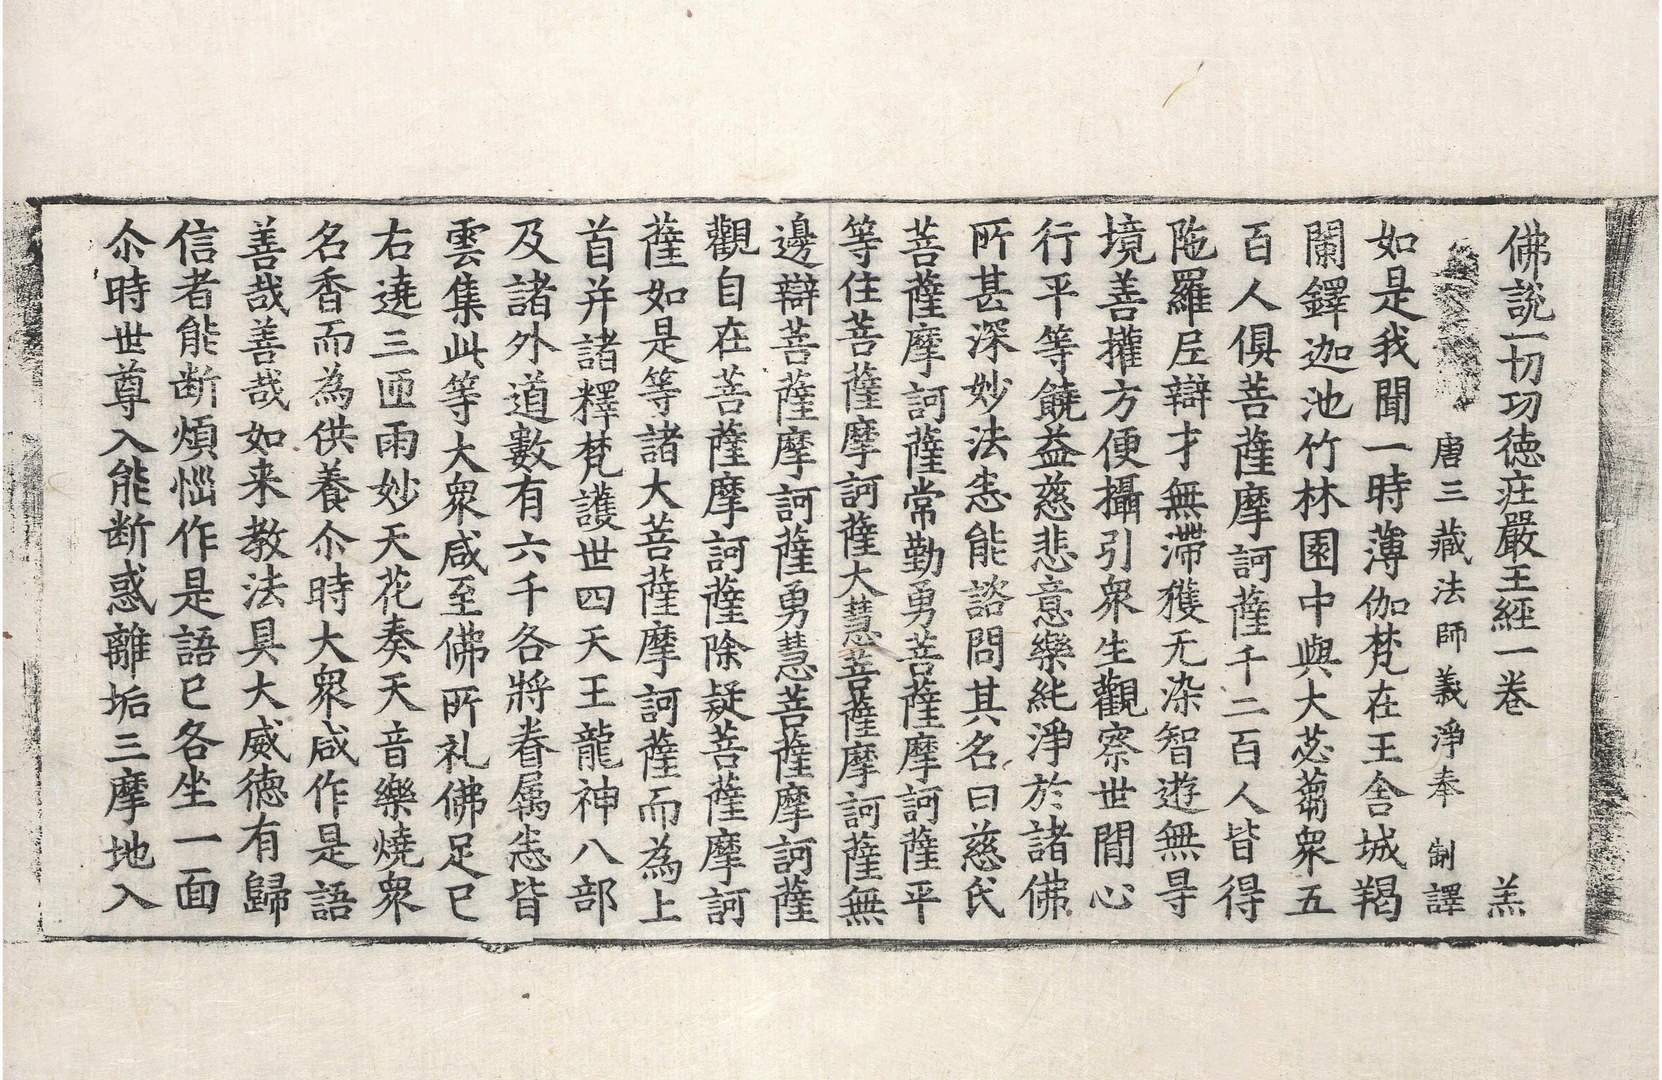 佛說一切功德莊嚴王經一卷 羔
唐三藏法師義淨奉 制譯
如是我聞一時薄伽梵在王舍城羯
闌鐸迦池竹林園中與大苾蒭衆五
百人俱菩薩摩訶薩千二百人皆得
陁羅尼辯才無滯獲无染智遊無㝵
境善權方便攝引衆生觀察世間心
行平等饒益慈悲意樂純淨於諸佛
所甚深妙法悉能諮問其名曰慈氏
菩薩摩訶薩常勤勇菩薩摩訶薩平
等住菩薩摩訶薩大慧菩薩摩訶薩無
邊辯菩薩摩訶薩勇慧菩薩摩訶薩
觀自在菩薩摩訶薩除疑菩薩摩訶
薩如是等諸大菩薩摩訶薩而為上
首并諸釋梵護世四天王龍神八部
及諸外道數有六千各將眷属悉皆
雲集此等大衆咸至佛所礼佛足已
右遶三匝雨妙天花奏天音樂燒衆
名香而為供養尒時大衆咸作是語
善哉善哉如来教法具大威德有歸
信者能断煩惱作是語已各坐一面
尒時世尊入能断惑離垢三摩地入